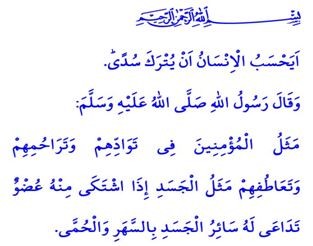 بِسْمِ اللّٰهِ الرَّحْمٰنِ الرَّحِيمِ
اَيَحْسَبُ الْاِنْسَانُ اَنْ يُتْرَكَ سُدًىۜ.
وَقَالَ رَسُولُ اللّٰهِ صَلَّى اللّٰهُ عَلَيْهِ وَسَلَّمَ:
مَثَلُ الْمُؤْمِنِينَ فِى تَوَادِّهِمْ وَتَرَاحُمِهِمْ
وَتَعَاطُفِهِمْ مَثَلُ الْجَسَدِ إِذَا اشْتَكَى مِنْهُ عُضْوٌ
تَدَاعَى لَهُ سَائِرُ الْجَسَدِ بِالسَّهَرِ وَالْحُمَّى.